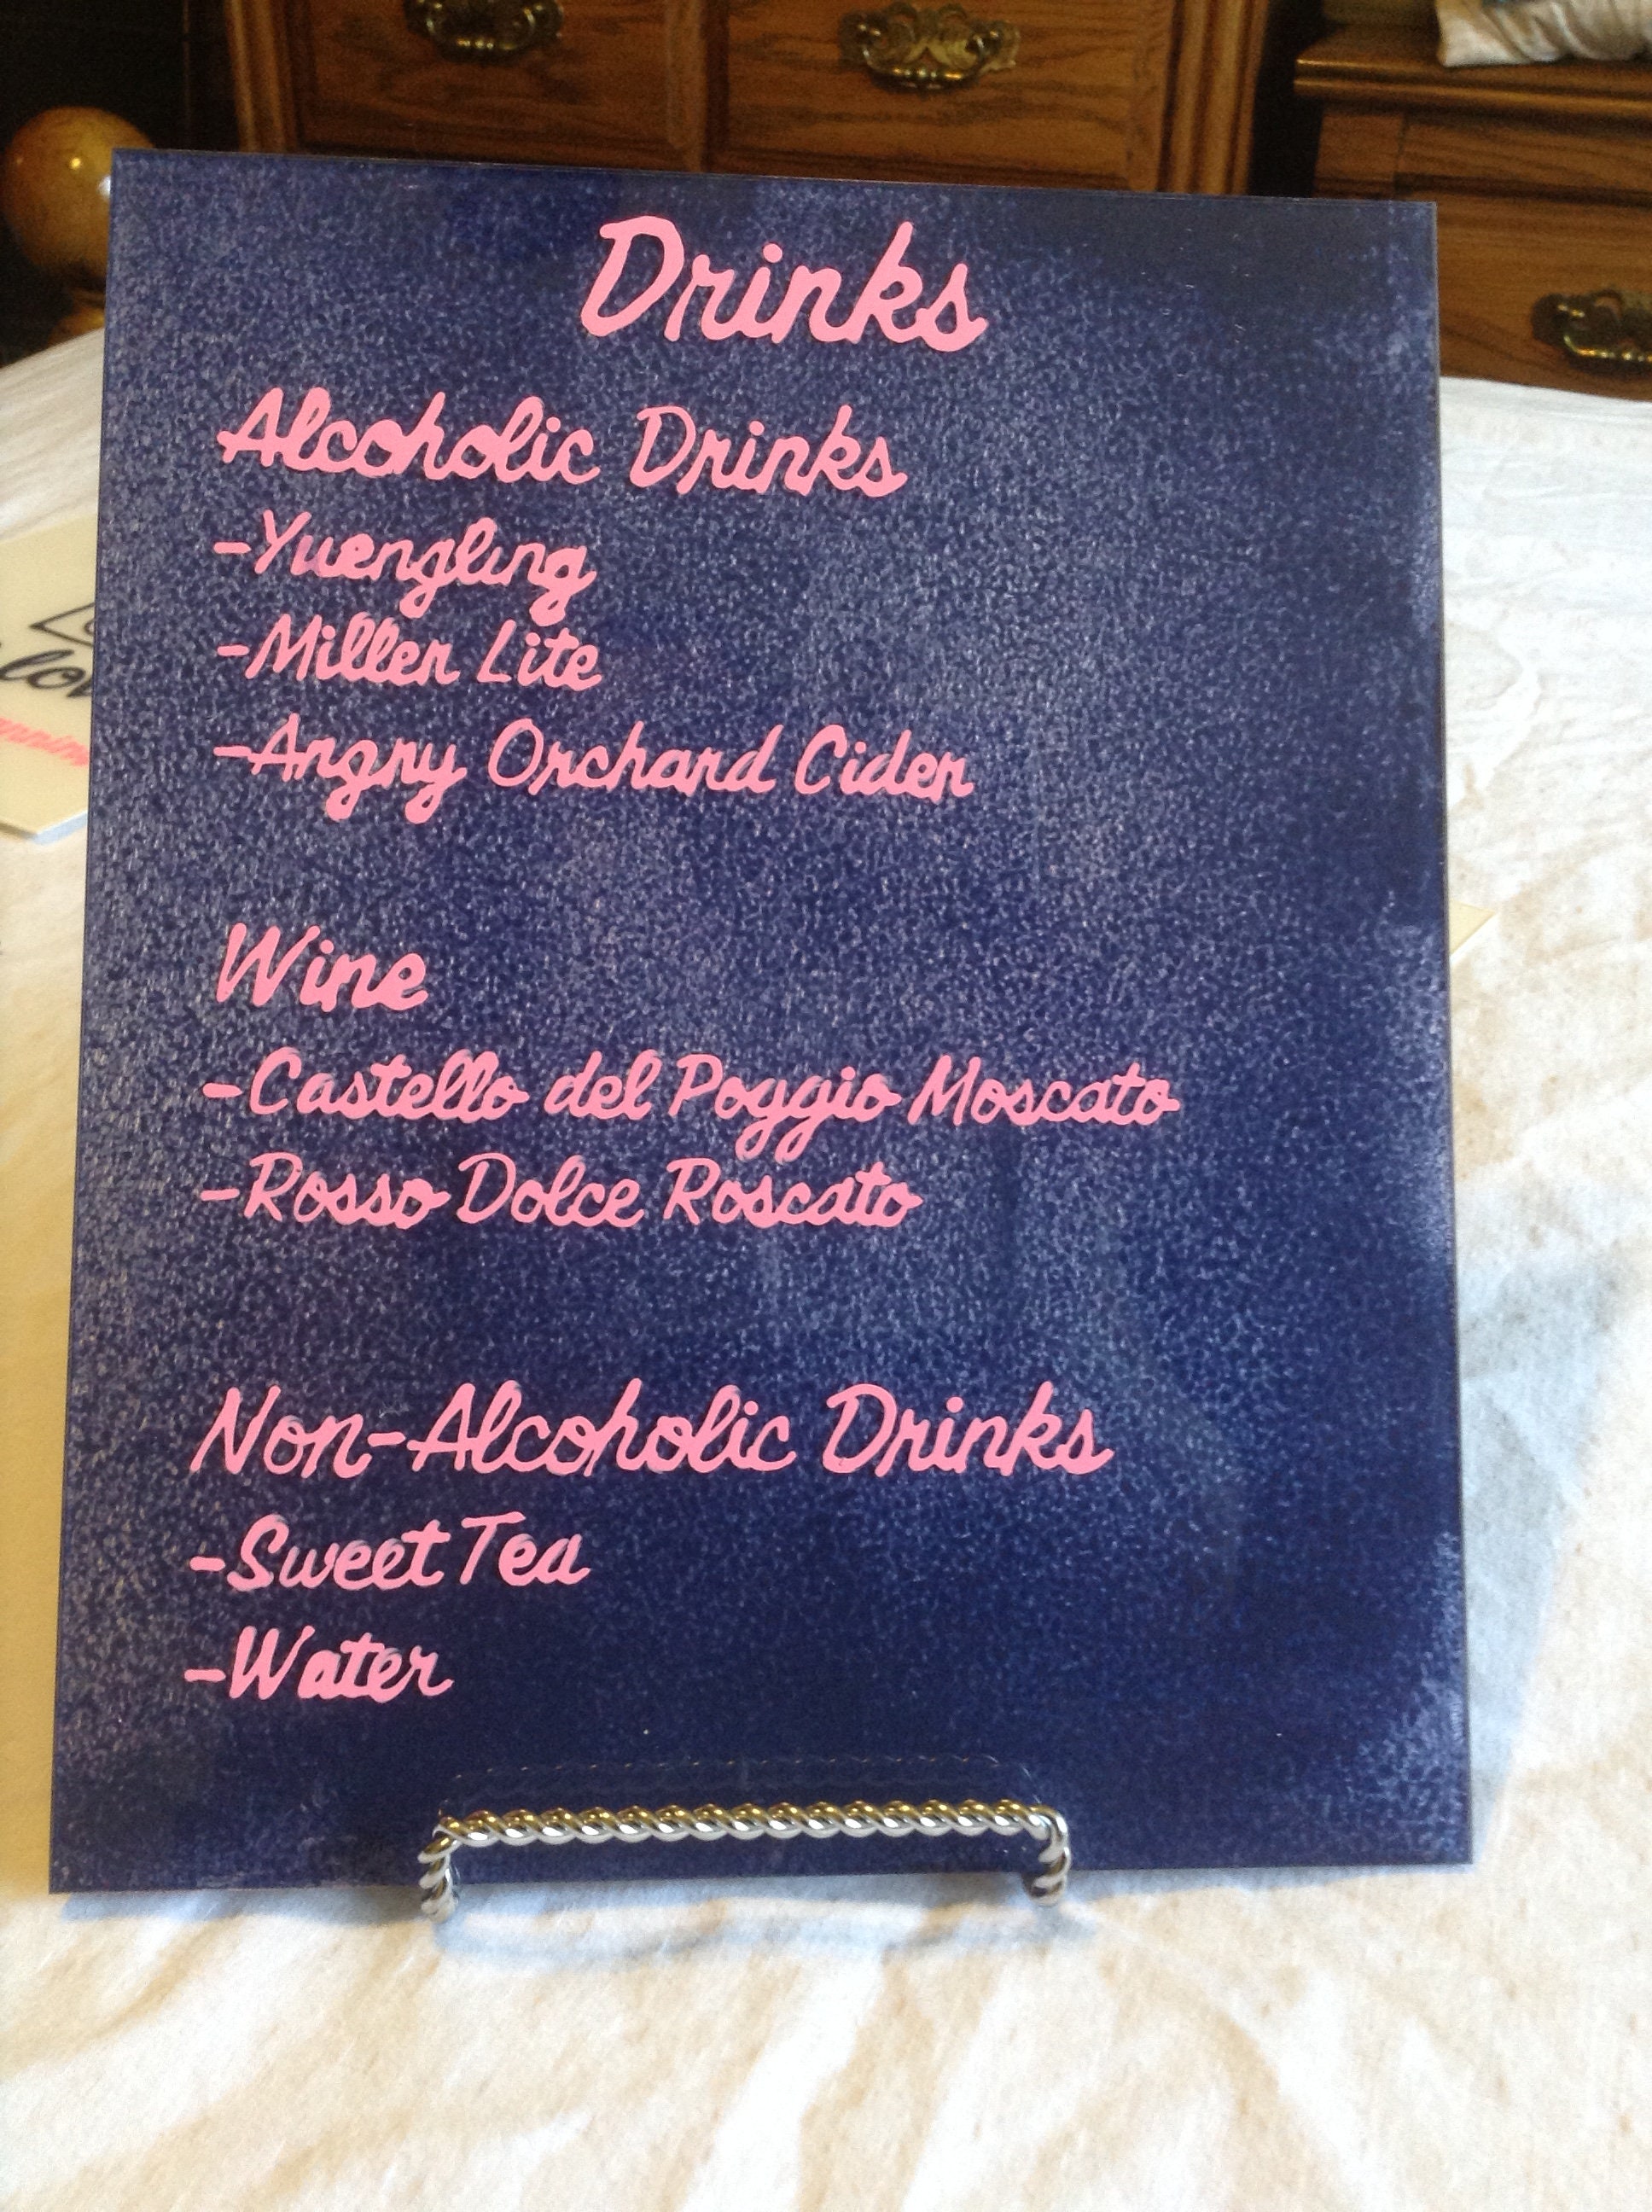 Drinks
Alcoholic Drinks
-Yuengling
-Miller Lite
-Angry Orchard Cider
Wine
-Castello del Poggio Moscato
-Rosso Dolce Roscato
Non-Alcoholic Drinks
-Sweet Tea
-Water